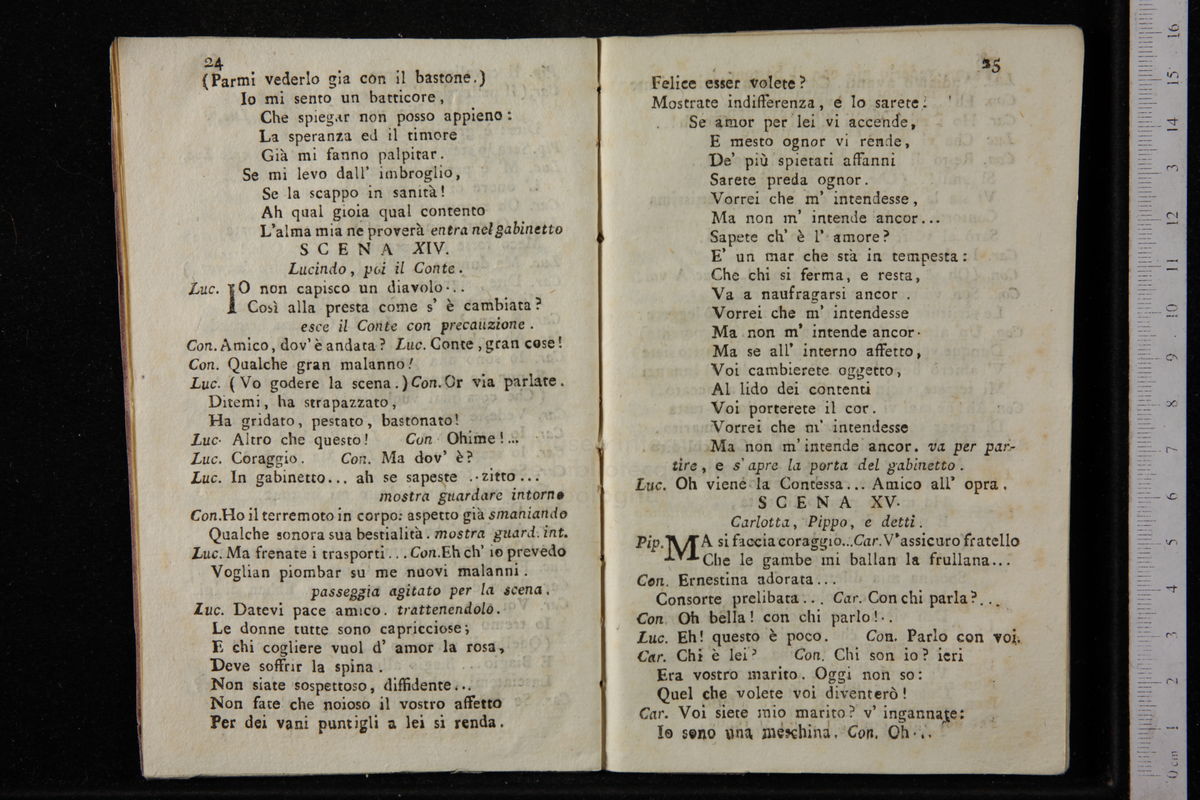 24
(Parmi vederlo gia con il bastone.)
Io mi sento un batticore,
Che spiegar non posso appieno:
La speranza ed il timore
Già mi fanno palpitar.
Se mi levo dall' imbroglio,
Se la scappo in sanità!
Ah qual gioia qual contento
L'alma mia ne proverà entra nel gabinetto
SCENA XIV.
Lucindo, poi il Conte.
Luc. IO non capisco un diavolo...
Così alla presta come s' è cambiata?
esce il Conte con precauzione.
Con. Amico, dov' è andata? Luc. Conte, gran cose!
Con. Qualche gran malanno!
Luc. (Vo godere la scena.) Con. Or via parlate.
Ditemi, ha strapazzato,
Ha gridato, pestato, bastonato!
Luc. Altro che questo! Con Ohime!...
Luc. Coraggio. Con. Ma dov' è?
Luc. In gabinetto... ah se sapeste ..zitto...
mostra guardare intorno
Con. Ho il terremoto in corpo: aspetto già smaniando
Qualche sonora sua bestialità. mostra guard. int.
Luc. Ma frenate i trasporti... Con. Eh ch' io prevedo
Voglian piombar su me nuovi malanni.
passeggia agitato per la scena.
Luc. Datevi pace amico. trattenendolo.
Le donne tutte sono capricciose;
E chi cogliere vuol d' amor la rosa,
Deve soffrir la spina.
Non siate sospettoso, diffidente...
Non fate che noioso il vostro affetto
Per dei vani puntigli a lei si renda.
25
Felice esser volete?
Mostrate indifferenza, e lo sarete.
Se amor per lei vi accende,
E mesto ognor vi rende,
De' più spietati affanni
Sarete preda ognor.
Vorrei che m' intendesse,
Ma non m' intende ancor...
Sapete ch' è l' amore?
E' un mar che stà in tempesta:
Che chi si ferma, e resta,
Va a naufragarsi ancor.
Vorrei che m' intendesse
Ma non m' intende ancor.
Ma se all' interno affetto,
Voi cambierete oggetto,
Al lido dei contenti
Voi porterete il cor.
Vorrei che m' intendesse
Ma non m' intende ancor. va per par-
tire, e s' apre la porta del gabinetto.
Luc. Oh viene la Contessa... Amico all' opra.
SCENA XV.
Carlotta, Pippo, e detti.
Pip. MA si faccia coraggio... Car. V'assicuro fratello
Che le gambe mi ballan la frullana...
Con. Ernestina adorata...
Consorte prelibata... Car. Con chi parla?...
Con Oh bella! con chi parlo!..
Luc. Eh! questo è poco. Con. Parlo con voi.
Car. Chi è lei? Con. Chi son io? ieri
Era vostro marito. Oggi non so:
Quel che volete voi diventerò!
Car. Voi siete mio marito? v' ingannate:
Io sono una meschina. Con. Oh...